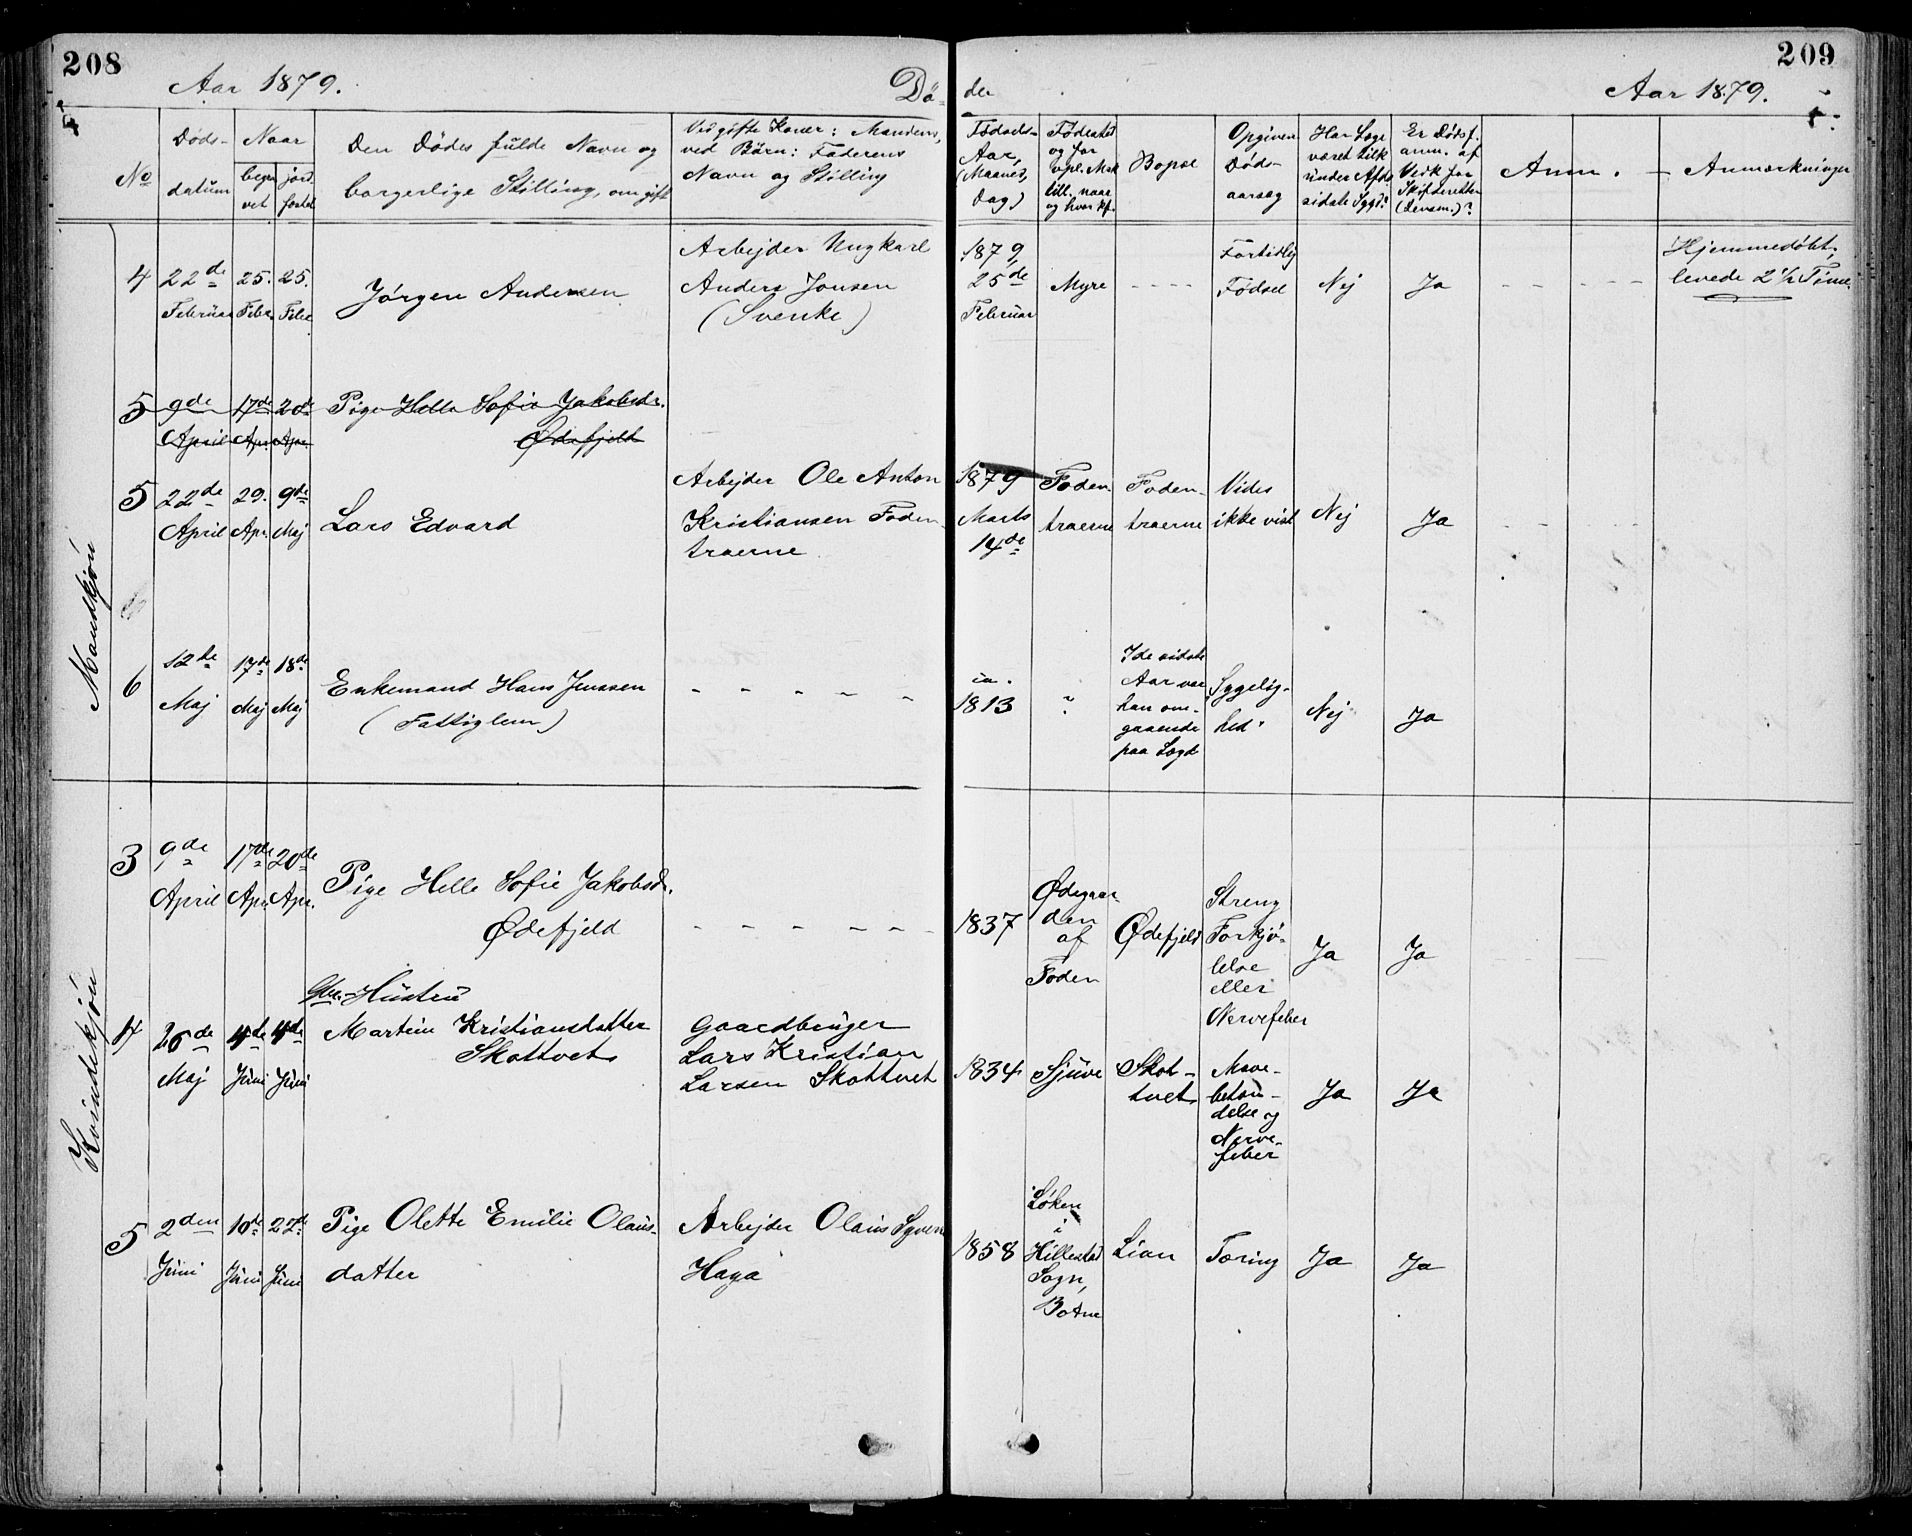 208
209
Aar 1879.
Dø-
de
Aar 1879.
No
Døds-
datum
Naar
begra-
vet
jord-
fæstet
Den Dødes fulde Navn og
borgerlige Stilling, om gift
Ved gifte Koner: Mandens,
ved Børn: Faderens
Navn og Stilling
Fødsels-
Aar,
(Maaned,
Dag)
Fødested
og for
till. naar
og hvor
Bopæl
Opgiven
Døds-
aarsag
Har Læge
været tilk
under Afdø
sidste Sygd?
Er Dødsf.
anm. af
Vedk for
Skifteretten
(Lensm.)?
Anm.
Anmærkninger
Mandkjøn
4
22de
Februar
25.
Febr.
25.
Febr.
Jørgen Andersen
Arbejder Ungkarl
Anders Jonsen
(Svenke)
1879,
25de
Februar
Myre
- - - -
Fortidlig
Fødsel
Nej
Ja
- - - - -
Hjemmedøbt,
levede 2½ Time
5
9de
April
17de
Apr.
20de
Apr.
Pige Helle Sofie Jakobsdr.
Ødefjeld
5
22de
April
29.
Apr.
9de
Maj
Lars Edvard
Arbejder Ole Anton
Kristiansen Foden-
traerne
1879
Marts
14de
Foden-
traerne
Foden-
traerne
Vides
ikke vist
Nej
Ja
- - - -
6
12de
Maj
17de
Maj
18de
Maj
Enkemand Hans Jenssen
(Fattiglem)
- - - - -
ca.
1813
?
I de sidste
Aar var
han om-
gaaende
paa Lægd
Sygelig-
hed
Nej
Ja
Kvindekjøn
3
9de
April
17de
Apr.
20de
Apr.
Pige Helle Sofie Jakobsdr.
Ødefjeld
- - - - - -
1837
Ødegaar-
den
af
Foden
Ødefjeld
Streng
Forkjø-
lelse
eller
Nervefeber
Ja
Ja
4
26de
Maj
4de
Juni
4de
Juni
Gbr.-Hustru
Martine Kristiansdatter
Skottvet
Gaardbruger
Lars Kristian
Larsen Skottvet
1834
Sjuve
Skot-
tvet
Mave-
betæn-
delse og
Nerve-
feber
Ja
Ja
5
2den
Juni
10de
Juni
22de
Juni
Pige Olette Emilie Olaus-
datter
Arbejder Olaus
Haga
1858
Løken
i
Hillestad
Sogn,
Botne
Lian
Tæring
Ja
Ja